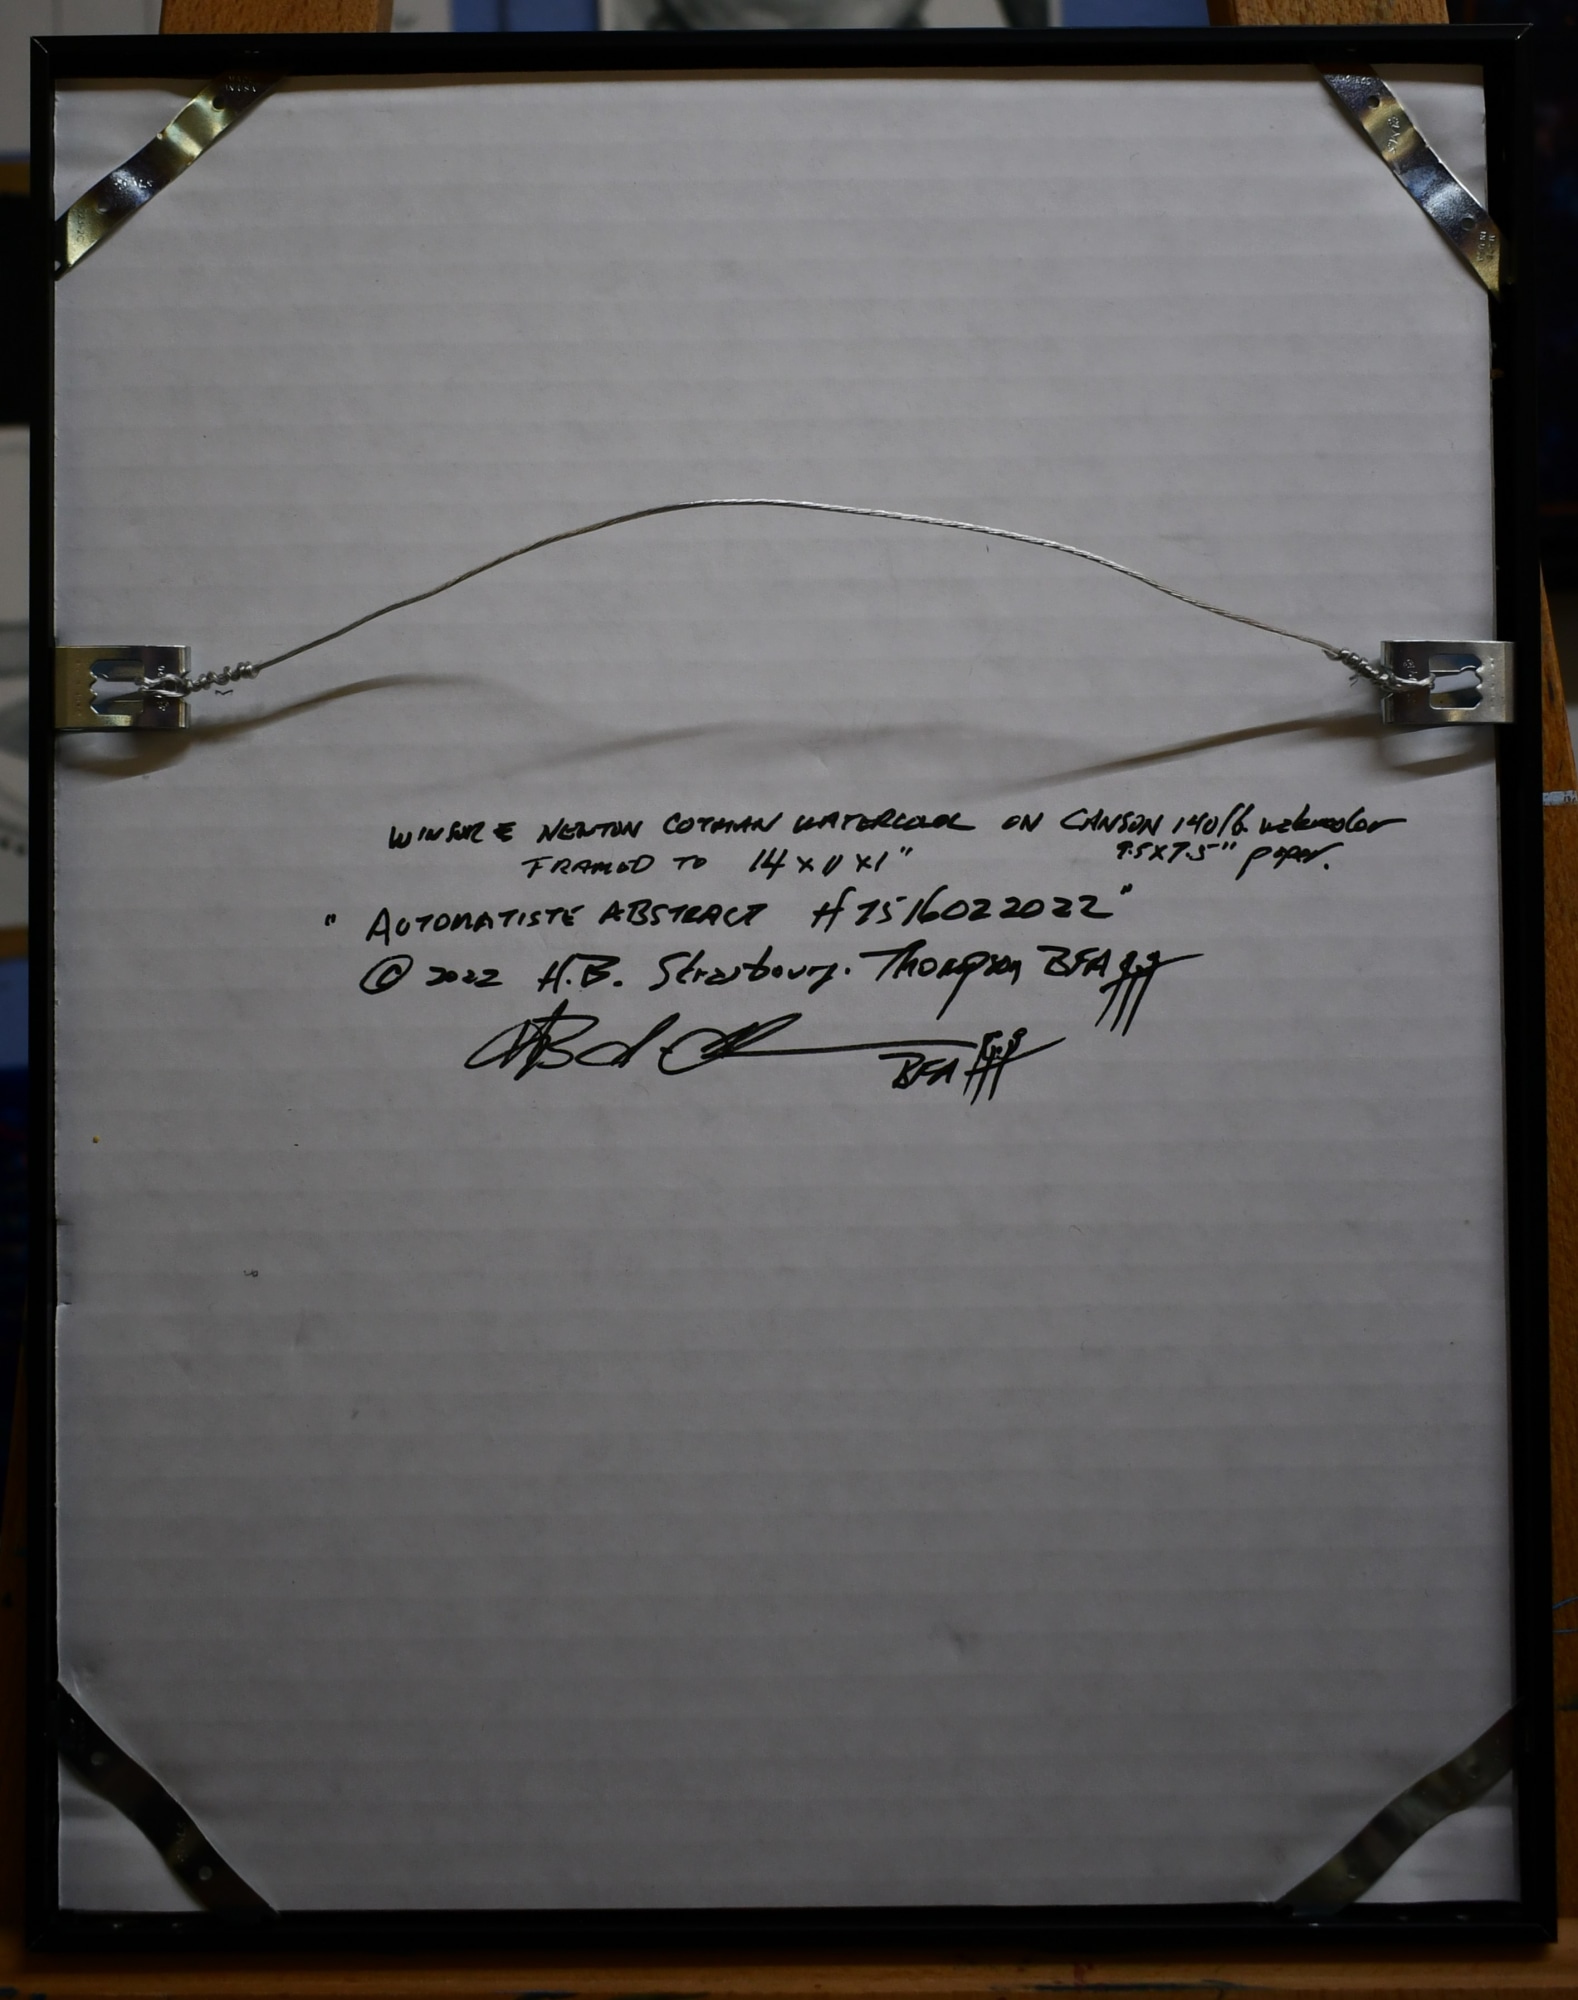 WINSOR & NEWTON COTMAN WATERCOLOR ON CANSON 140lb. watercolor
FRAMED TO 14 x 11 x 1" 9.5 x 7.5" paper.
"AUTOMATISTE ABSTRACT #7516022022"
© 2022 H.B. Strasbourg. Thompson BFA
BFA